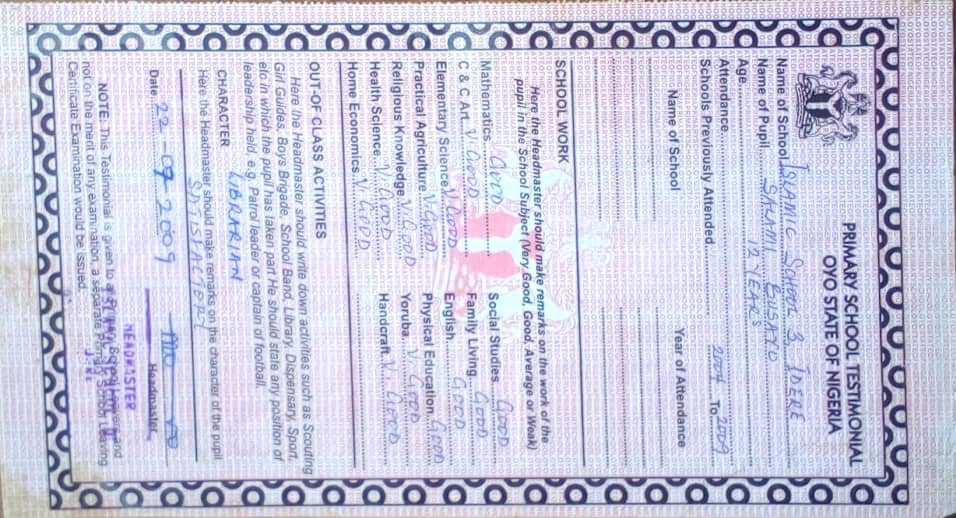 PRIMARY SCHOOL TESTIMONIAL
OYO STATE OF NIGERIA
Name of School ISLAMIC SCHOOL 3 IDERE
Name of Pupil SANMI BUSAYO
Age 12 YEARS
Attendance 2004 To 2009
Schools Previously Attended
Name of School Year of Attendance
SCHOOL WORK
Here the Headmaster should make remarks on the work of the
pupil in the School Subject (Very Good, Good, Average or Weak)
Mathematics GOOD Social Studies GOOD
C & C Art V. GOOD Family Living GOOD
Elementary Science V. GOOD English GOOD
Practical Agriculture V. GOOD Physical Education GOOD
Religious Knowledge V. GOOD Yoruba V GOOD
Health Science V. GOOD Handcraft V. GOOD
Home Economics V. GOOD
OUT-OF CLASS ACTIVITIES
Here the Headmaster should write down activities such as Scouting
Girl Guides, Boys Brigade, School Band, Library, Dispensary, Sport,
etc in which the pupil has taken part He should state any position of
leadership held e.g. Patrol leader or captain of football.
LIBRARIAN
CHARACTER
Here the Headmaster should make remarks on the character of the pupil
Date 22-07-2009 Headmaster
HEADMASTER
NOTE: This Testimonial is given to a and
not on the merit of any examination, a separate Primary School Leaving
Certificate Examination would be issued.